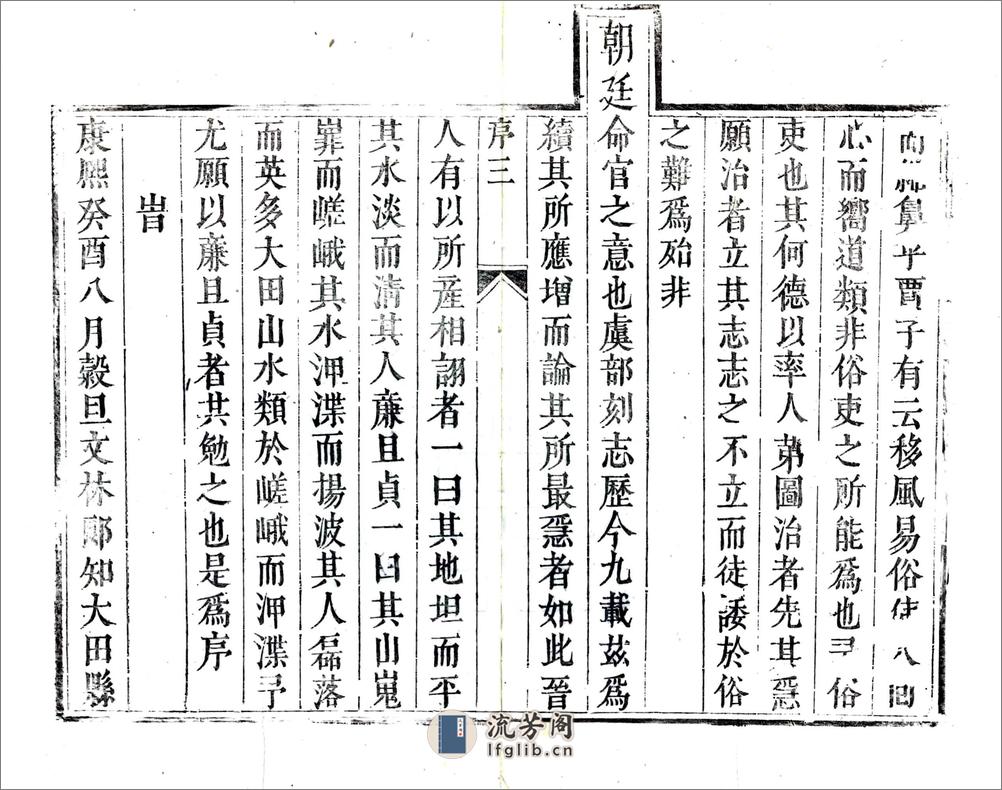 鼻乎賈子有云移風易俗使人回
心而嚮道類非俗吏之所能爲也予俗
吏也其何德以率人苐圖治者先其急
願治者立其志志之不立而徒諉於俗
之難爲殆非
朝廷命官之意也虞部刻志歷今九載茲爲
續其所應增而論其所最急者如此晉
序三
人有以所産相詡者一曰其地坦而平
其水淡而清其人亷且貞一曰其山嵬
嶵而嵯峨其水浬渫而揚波其人磊落
而英多大田山水類於嵯峨而浬渫予
尤願以亷且貞者共勉之也是爲序
旹
康熙癸酉八月穀旦文林郎知大田縣
流芳阁
lfglib.cn